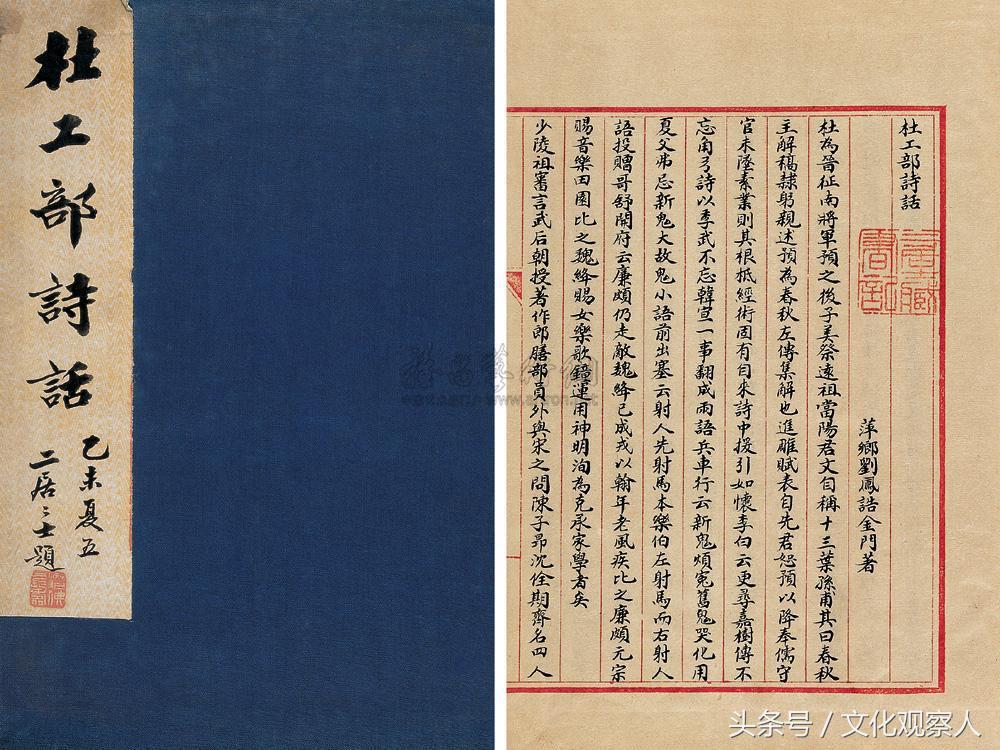 杜工部詩話
乙未夏五
二居士題
杜工部詩話
萍鄉劉鳳誥金門著
杜為晉征南將軍預之後子美祭遠祖當陽君文自稱十三葉孫甫其曰春秋
主解稿隸躬親述預為春秋左傳集解也進雕賦表自先君恕預以降奉儒守
官未墜素業則其根柢經術固有自来詩中援引如懷李白云更尋嘉樹傳不
忘角弓詩以季武不忘韓宣一事翻成兩語兵車行云新鬼煩冤舊鬼哭化用
夏父弗忌新鬼大故鬼小語前出塞云射人先射馬本樂伯左射馬而右射人
語投贈哥舒開府云廉頗仍走敵魏絳已成戎以翰年老風疾比之廉頗元宗
賜音樂田園比之魏絳賜女樂歌鐘運用神明洵為克承家學者矣
少陵祖審言武后朝授著作郎膳部員外與宋之問陳子昂沈佺期齊名四人
头条号 / 文化观察人